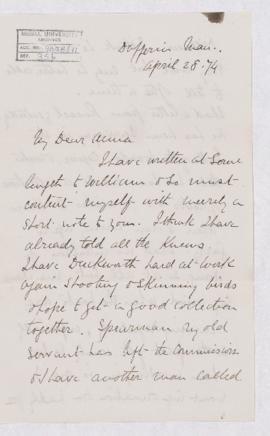 McGILL UNIVERSITY
ARCHIVES
ACC. NO.
REF.
Dufferin Man..
April 28. 74
My Dear Anna
I have written at some
length to William & so must
content myself with merely a
short note to you. I think I have
already told all the news.
I have Duckworth hard at work
again shooting & skinning birds
& hope to get a good collection
together. Spearman my old
servant has left the Commission
& I have another man called